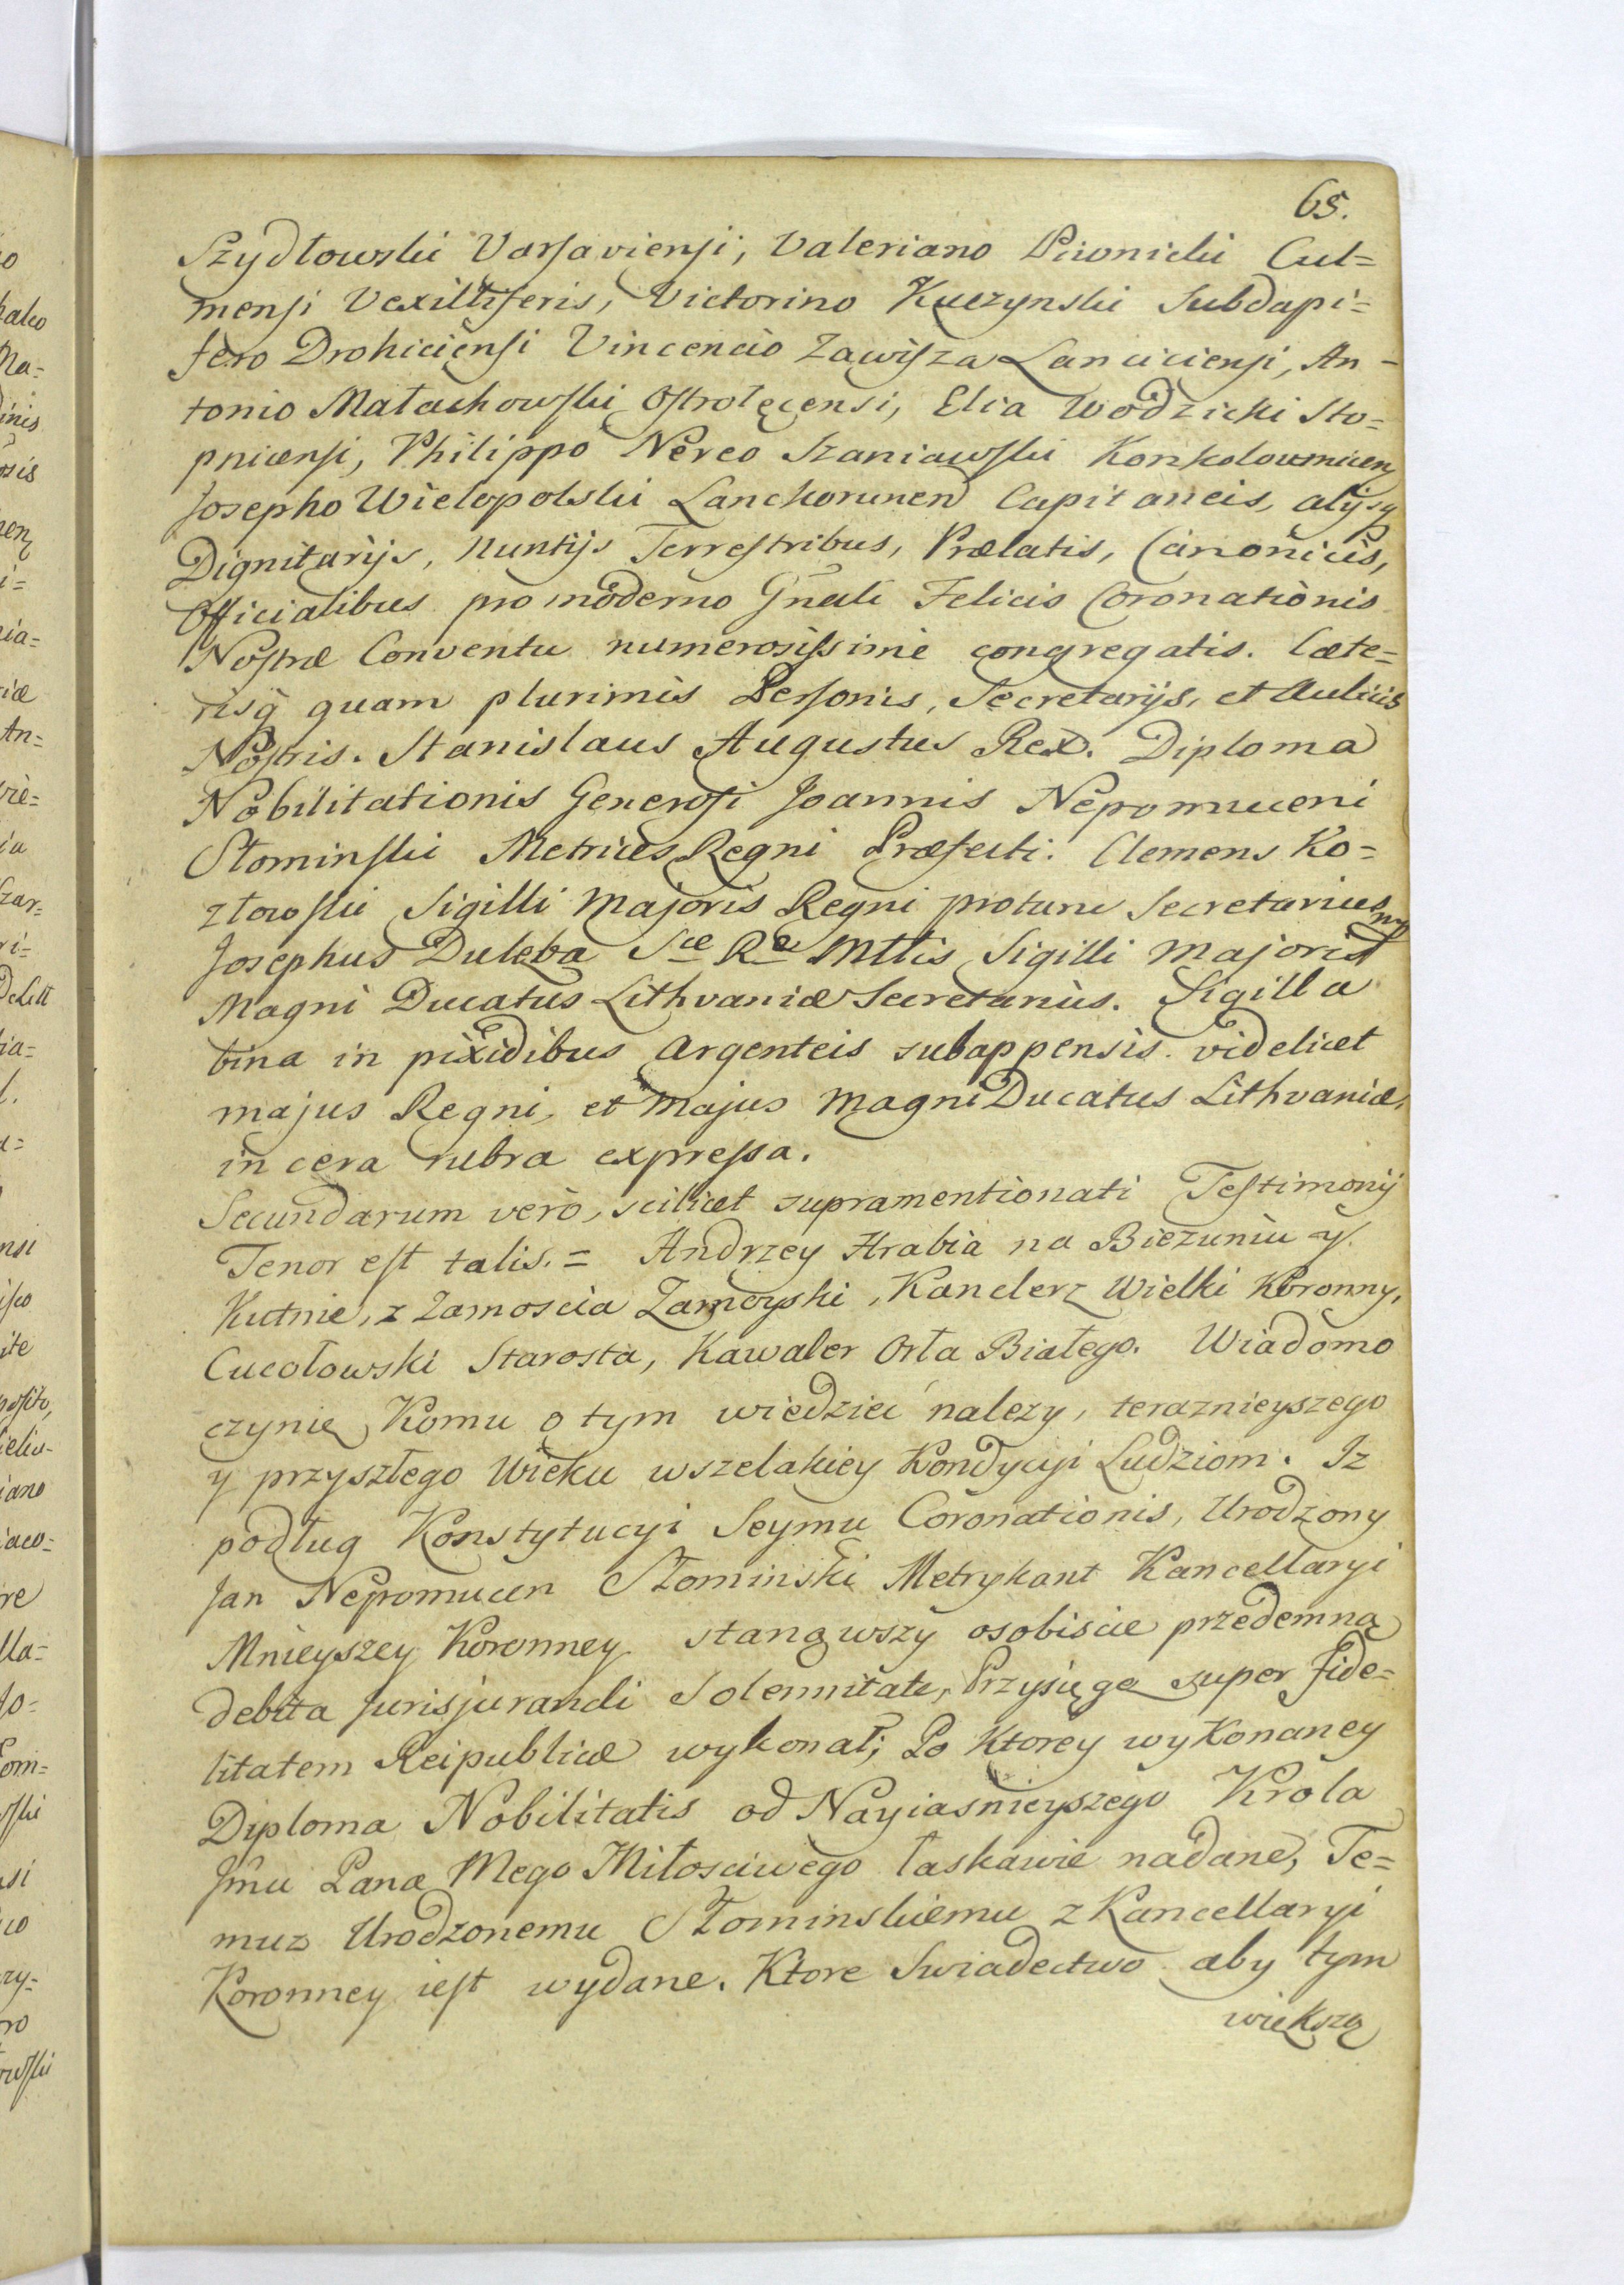 65.
Szydłowski Varsaviensi, Valeriano Piwnicki Cul=
mensi Vexilliferis, Victorino Kuczynski Subdapi=
fero Drohiciensi Vincencio Zawisza Lanciciensi, An=
tonio Małachowski Ostrołęcensi, Elia Wodzicki Sto=
pnicensi, Philippo Nereo Szaniawski Konkolownicen
Josepho Wielopolski Lanckorunen Capitaneis, alijsq
Dignitarijs, Nuntijs Terrestribus, Prælatis, Canonicis,
Officialibus pro moderno Gnāli Felicis Coronationis
Nostræ Conventu numerosissime congregatis. Cæte=
risq̃ quam plurimis Personis, Secretarijs, et Aulicis
Nostris. Stanislaus Augustus Rex. Diploma
Nobilitationis Generosi Joannis Nepomuceni
Słominski Metrices Regni Præfecti. Clemens Ko=
złowski Sigilli Majoris Regni protunc Secretarius mp
Josephus Dulęba Sæ Ræ Mttis Sigilli Majoris
Magni Ducatus Lithvaniæ Secretarius. Sigilla
bina in pixidibus argenteis subappensis videlicet
majus Regni, et Majus Magni Ducatus Lithvaniæ,
in cera rubra expressa.
Secundarum verò, scilicet supramentionati Testimonij
Tenor est talis. = Andrzey Hrabia na Biezuniu y
Kutnie, z Zamoscia Zamoyski, Kanclerz Wielki Koronny,
Cucołowski Starosta, Kawaler Orła Białego. Wiadomo
czynię Komu o tym wiedzieć nalezy, teraznieyszego
y przyszłego Wieku wszelakiey Kondycyi Ludziom. Iz
podług Konstytucyi Seymu Coronationis, Urodzony
Jan Nepomucen Słominski Metrykant Kancellaryi
Mnieyszey Koronney stanąwszy osobiscie przedemną
debita Jurisjurandi Solennitate, Przysięgę super fide=
litatem Reipublicæ wykonał; Po Ktorey wykonaney
Diploma Nobilitatis od Nayiasnieyszego Krola
Jmći Pana Mego Miłosciwego łaskawie nadane, Te=
muz Urodzonemu Słominskiemu z Kancellaryi
Koronney iest wydane. Ktore Swiadectwo aby tym
większą